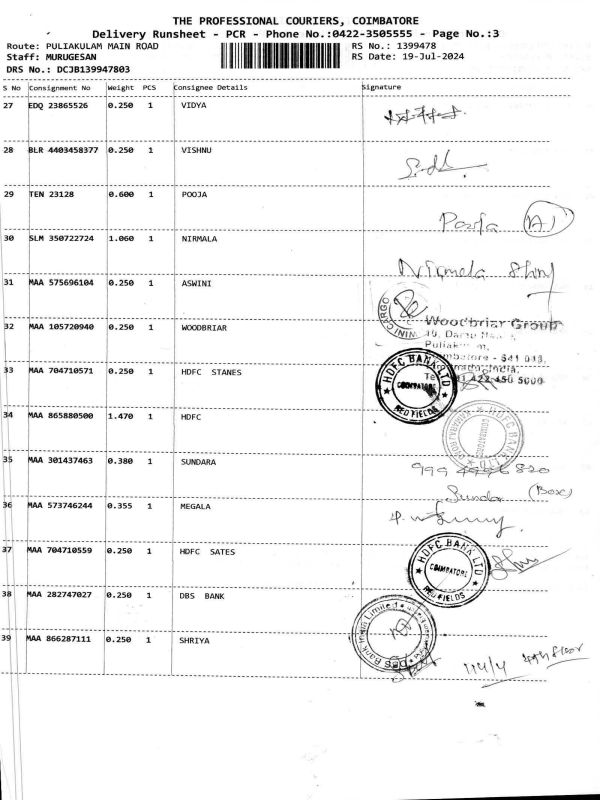 THE PROFESSIONAL COURIERS, COIMBATORE
Delivery Runsheet - PCR - Phone No.:0422-3505555 - Page No.:3
Route: PULIAKULAM MAIN ROAD RS No.: 1399478
Staff: MURUGESAN RS Date: 19-Jul-2024
DRS No.: DCJB139947803
S No Consignment No Weight PCS Consignee Details Signature
27 EDQ 23865526 0.250 1 VIDYA
28 BLR 4403458377 0.250 1 VISHNU
29 TEN 23128 0.600 1 POOJA
Pooja
30 SLM 350722724 1.060 1 NIRMALA
Nirmela
31 MAA 575696104 0.250 1 ASWINI
32 MAA 105720940 0.250 1 WOODBRIAR
Woodbriar Group
33 MAA 704710571 0.250 1 HDFC STANES
HDFC BANK LTD
COIMBATORE
RED FIELDS
34 MAA 865880500 1.470 1 HDFC
HDFC BANK
COIMBATORE
35 MAA 301437463 0.380 1 SUNDARA
Sunda (Box)
36 MAA 573746244 0.355 1 MEGALA
37 MAA 704710559 0.250 1 HDFC SATES
HDFC BANK LTD
COIMBATORE
RED FIELDS
38 MAA 282747027 0.250 1 DBS BANK
DBS Bank India Limited
39 MAA 866287111 0.250 1 SHRIYA
114/4 4th floor